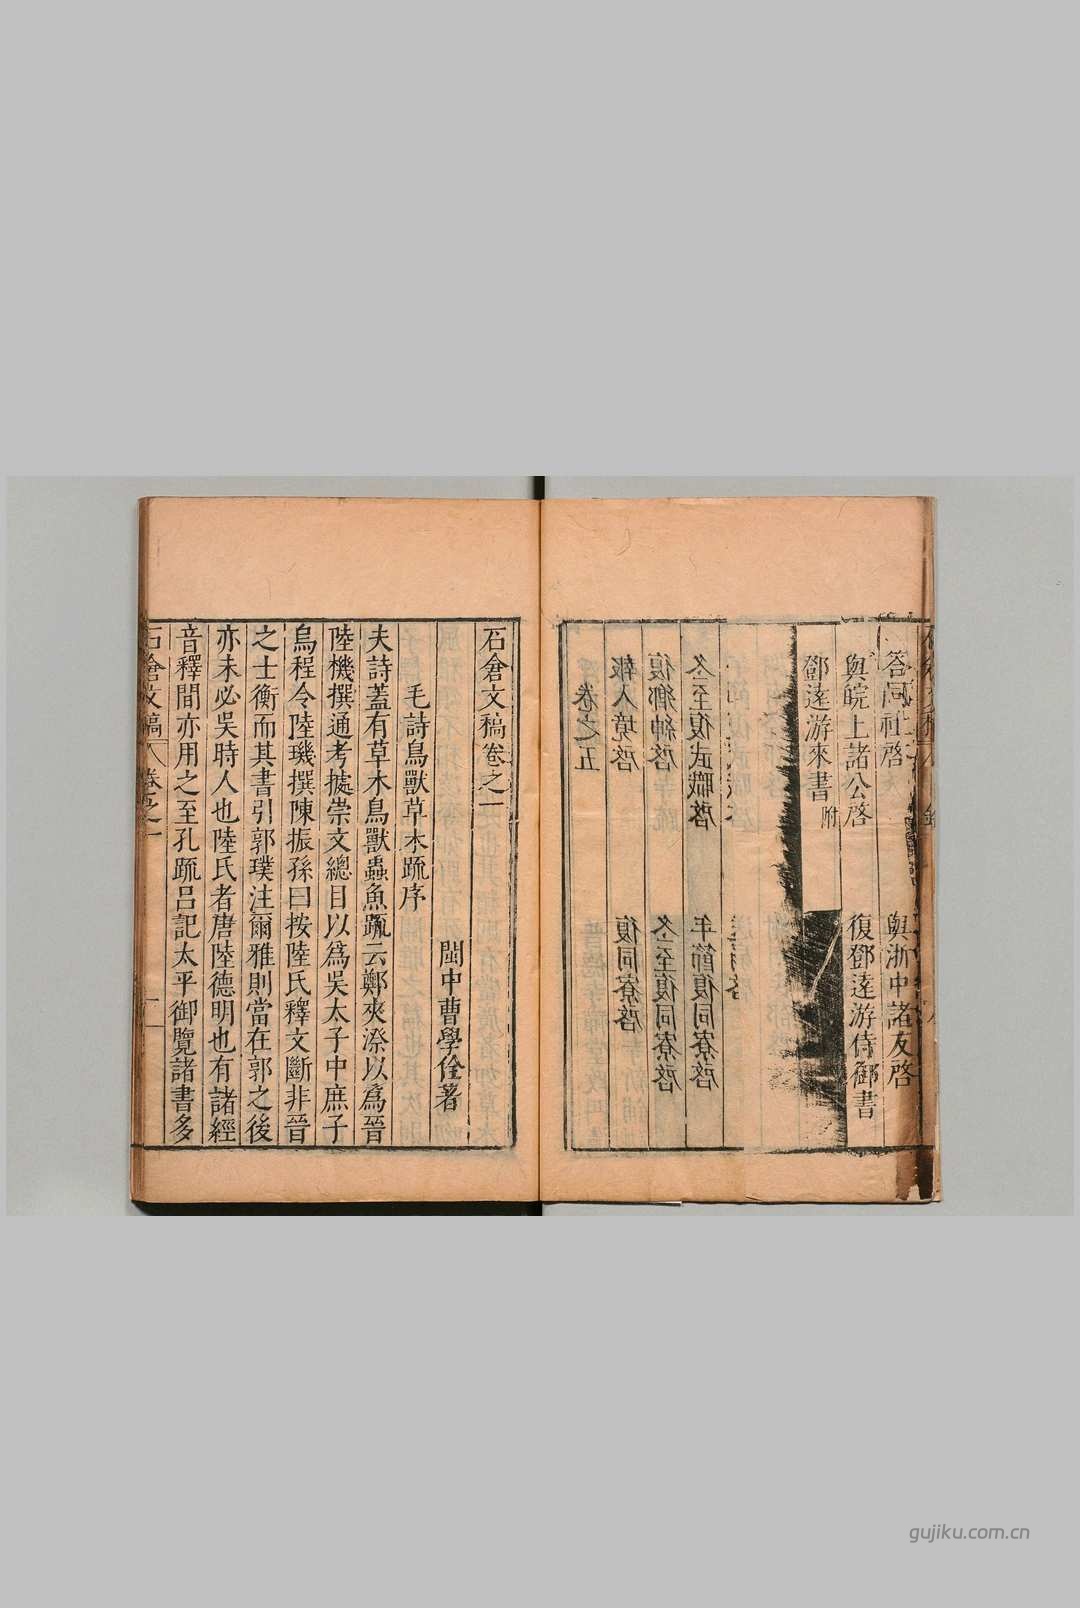 答同社啓
與浙中諸友啓
與皖上諸公啓
復鄧遠游侍御書
鄧遠游來書附
冬至復武職啓
年節復同寮啓
復鄉紳啓
冬至復同寮啓
報入境啓
復同寮啓
卷之五
石倉文稿卷之一
閩中曹學佺著
毛詩鳥獸草木疏序
夫詩蓋有草木鳥獸蟲魚疏云鄭夾漈以為晉
陸機撰通考據崇文總目以為吳太子中庶子
烏程令陸璣撰陳振孫曰按陸氏釋文斷非晉
之士衡而其書引郭璞注爾雅則當在郭之後
亦未必吳時人也陸氏者唐陸德明也有諸經
音釋間亦用之至孔疏呂記太平御覽諸書多
石倉文稿 卷之一 一
gujiku.com.cn